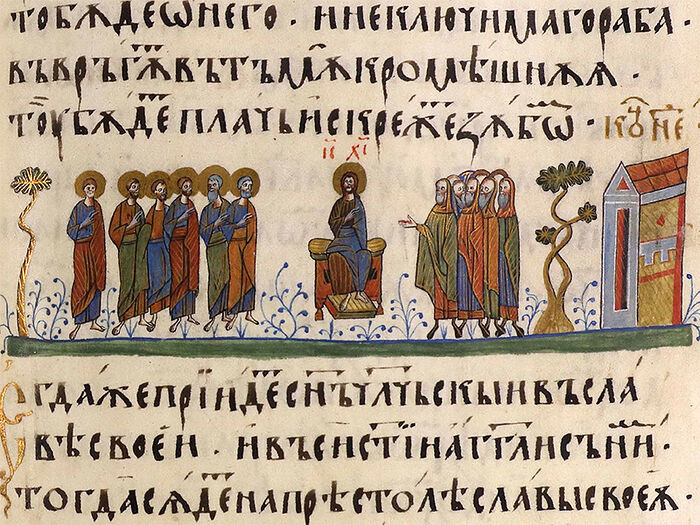 ТОБѪДЕѾНЕГО · ИНЕКЛЮЧИМАГОРАБА
ВЪВРЪГѪВЪТЪМѪКРОМѢШНѦѦ ·
ТꙊБѪДЕПЛАЧЬИСКРЕЖЕЗѪБѠ · КОНЕ ·
ІС ХС
ЕГДАЖЕПРЇИДЕСНЪЧЛЧЬСКЫИВЪСЛА
ВѢСВОЕИ · ИВЪСИСТЇИАГГЛИСЪНИ
ТОГДАСѦДЕНАПРѢСТОЛѢСЛАВЫСВОЕѪ ·